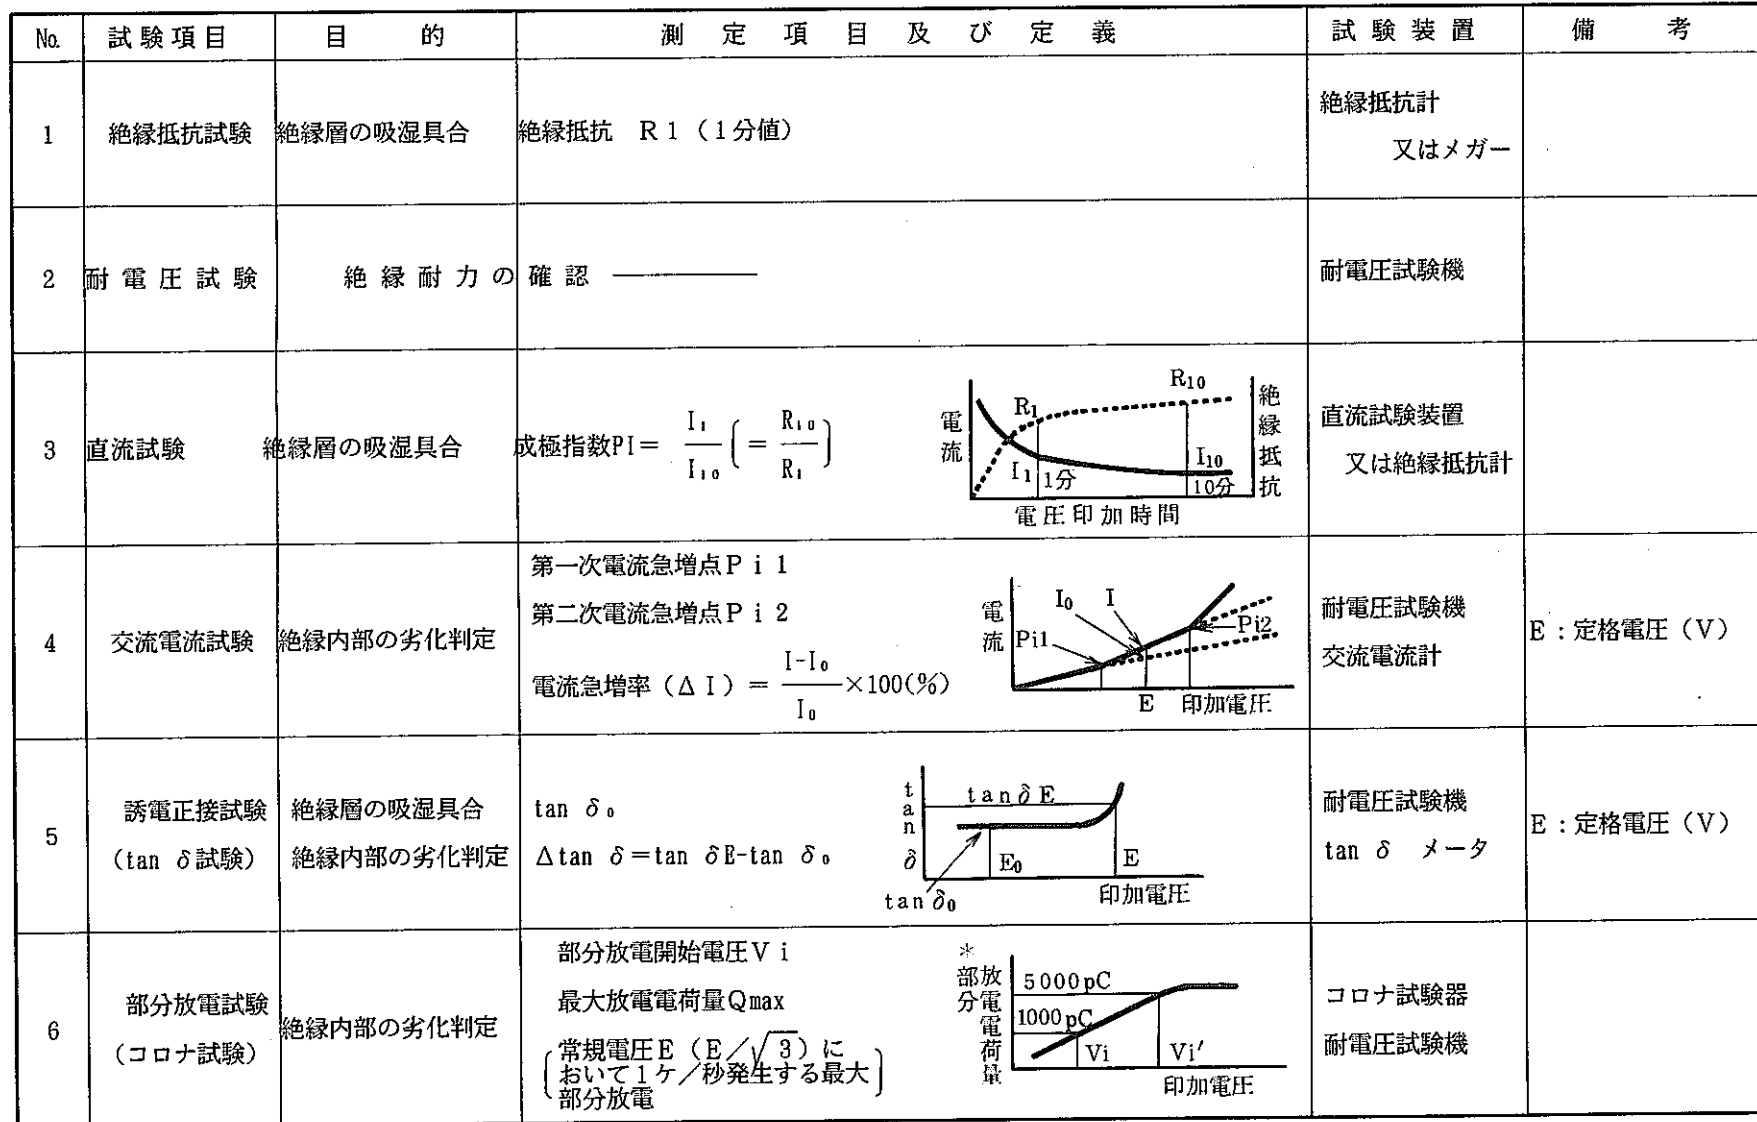 No. 試験項目 目的 測定項目及び定義 試験装置 備考
1 絶縁抵抗試験 絶縁層の吸湿具合 絶縁抵抗 R1（1分値） 絶縁抵抗計
又はメガー
2 耐電圧試験 絶縁耐力の確認 ――― 耐電圧試験機
3 直流試験 絶縁層の吸湿具合 成極指数PI＝ I₁/I₁₀ (＝ R₁₀/R₁)
電流
R₁
R₁₀
I₁
1分
I₁₀
10分
絶縁抵抗
電圧印加時間
直流試験装置
又は絶縁抵抗計
4 交流電流試験 絶縁内部の劣化判定
第一次電流急増点Pi1
第二次電流急増点Pi2
電流急増率（ΔI）＝ I-I₀/I₀ ×100(%)
電流
I₀
I
Pi1
Pi2
E 印加電圧
耐電圧試験機
交流電流計
E：定格電圧（V）
5
誘電正接試験
(tan δ試験)
絶縁層の吸湿具合
絶縁内部の劣化判定
tan δ₀
Δtan δ＝tan δE-tan δ₀
tan δ
tanδE
E₀
E
tanδ₀
印加電圧
耐電圧試験機
tan δ メータ
E：定格電圧（V）
6
部分放電試験
（コロナ試験）
絶縁内部の劣化判定
部分放電開始電圧Vi
最大放電電荷量Qmax
(常規電圧E（E／√3）に
おいて1ケ／秒発生する最大
部分放電)
＊
部分放電電荷量
5000pC
1000pC
Vi
Vi′
印加電圧
コロナ試験器
耐電圧試験機